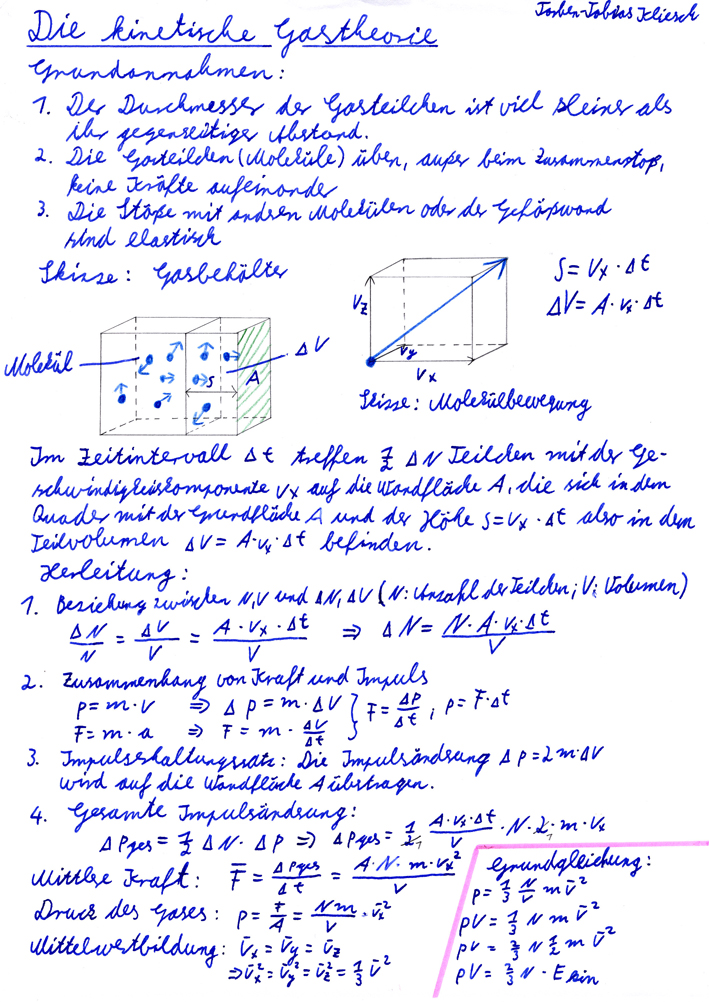 Torben-Tobias Kliesch
Die kinetische Gastheorie
Grundannahmen:
1. Der Durchmesser der Gasteilchen ist viel kleiner als
ihr gegenseitiger Abstand.
2. Die Gasteilchen (Moleküle) üben, außer beim Zusammenstoß,
keine Kräfte aufeinander
3. Die Stöße mit andren Molekülen oder der Gefäßwand
sind elastisch
Skizze: Gasbehälter
S = Vx · Δt
ΔV = A · vx · Δt
Vz
vy
Vx
Molekül
ΔV
s
A
Skizze: Molekülbewegung
Im Zeitintervall Δt treffen 1/2 ΔN Teilchen mit der Ge-
schwindigkeitskomponente vx auf die Wandfläche A, die sich in dem
Quader mit der Grundfläche A und der Höhe S=Vx · Δt also in dem
Teilvolumen ΔV = A·vx·Δt befinden.
Herleitung:
1. Beziehung zwischen N,V und ΔN,ΔV (N: Anzahl der Teilchen; V: Volumen)
ΔN/N = ΔV/V = A · vx · Δt/V ⇒ ΔN = N · A · vx · Δt/V
2. Zusammenhang von Kraft und Impuls
p = m · v ⇒ Δp = m · ΔV } F = Δp/Δt ; p = F · Δt
F = m · a ⇒ F = m · Δv/Δt
3. Impulserhaltungssatz: Die Impulsändrung Δp = 2m·ΔV
wird auf die Wandfläche A übertragen.
4. Gesamte Impulsändrung:
Δpges = 1/2 ΔN · Δp ⇒ Δpges = 1/2 A · vx · Δt/V · N · 2 · m · vx
Mittlere Kraft: F̄ = Δpges/Δt = A · N · m · vx²/V
Druck des Gases: p = F/A = Nm/V · v̄x²
Mittelwertbildung: v̄x = v̄y = v̄z
⇒ v̄x² = v̄y² = v̄z² = 1/3 v̄²
Grundgleichung:
p = 1/3 N/V m v̄²
pV = 1/3 N m v̄²
pV = 2/3 N 1/2 m v̄²
pV = 2/3 N · Ekin